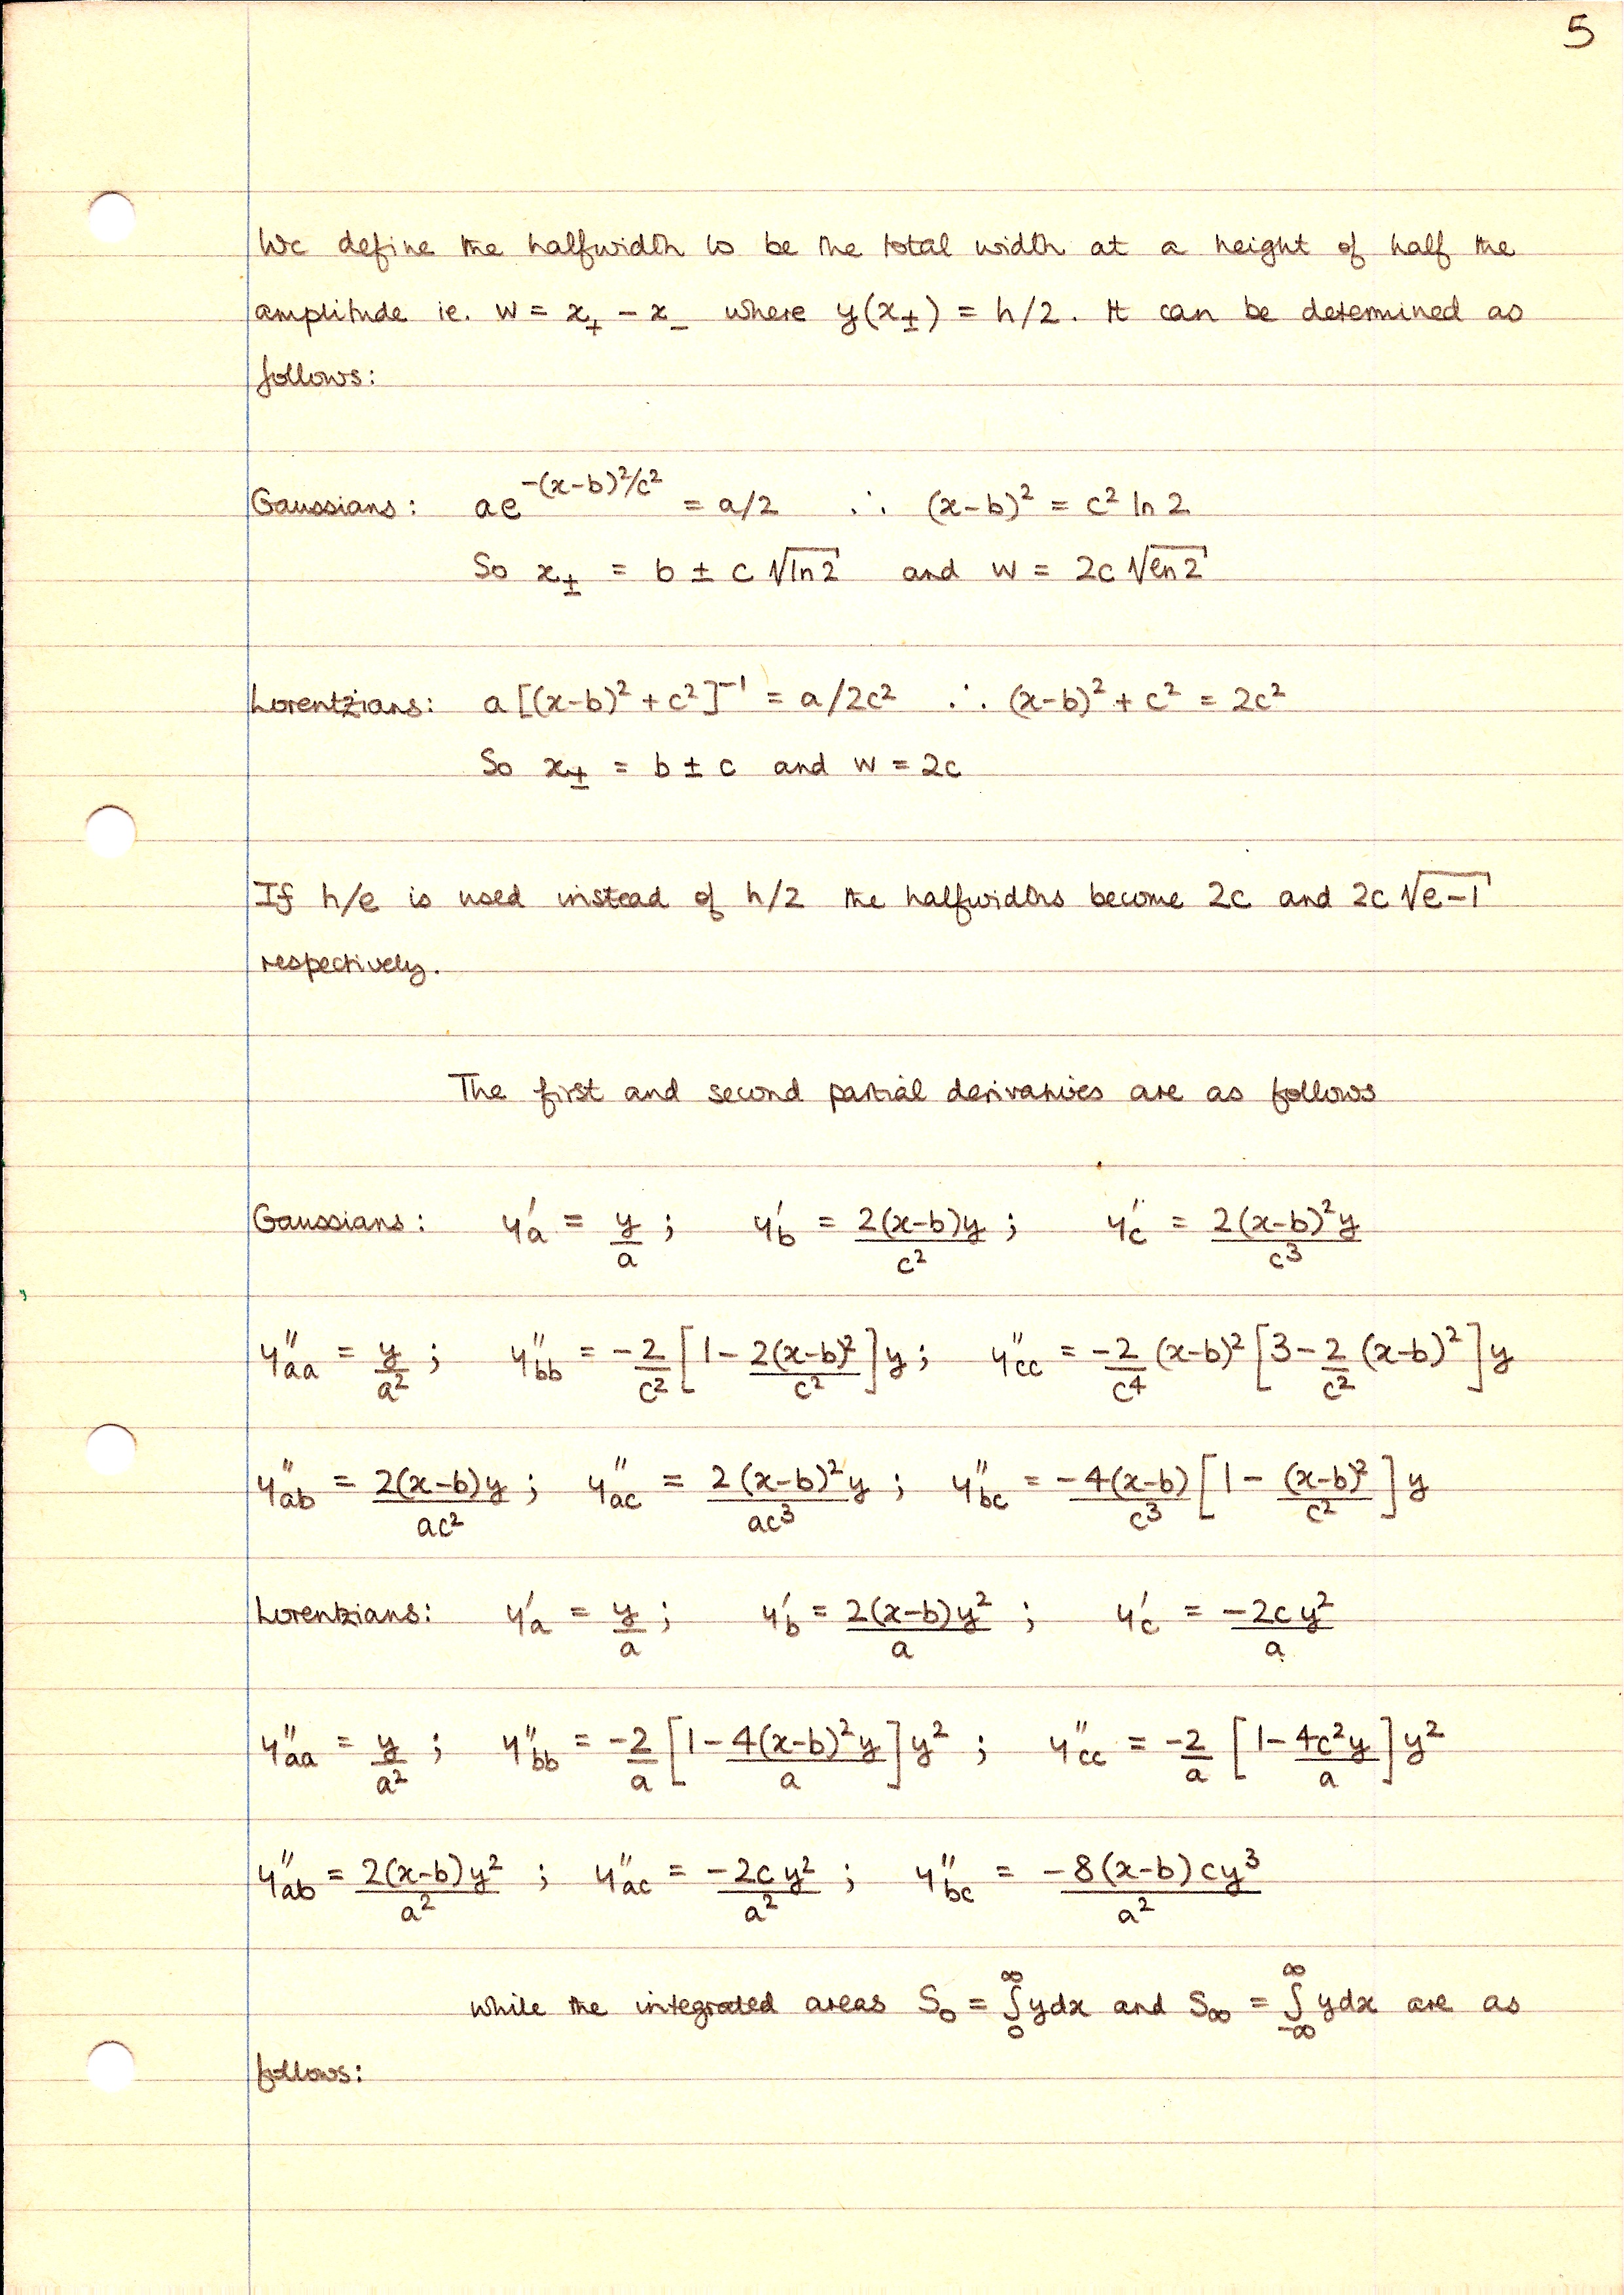 5
We define the halfwidth to be the total width at a height of half the
amplitude ie. w = x₊ − x₋ where y(x±) = h/2. It can be determined as
follows:
Gaussians: ae^{−(x−b)²/c²} = a/2 ∴ (x−b)² = c² ln 2
So x± = b ± c √(ln 2) and w = 2c √(ln 2)
Lorentzians: a[(x−b)² + c²]⁻¹ = a/2c² ∴ (x−b)² + c² = 2c²
So x± = b ± c and w = 2c
If h/e is used instead of h/2 the halfwidths become 2c and 2c √(e−1)
respectively.
The first and second partial derivatives are as follows
Gaussians: y′_a = y/a ; y′_b = 2(x−b)y/c² ; y′_c = 2(x−b)²y/c³
y″_aa = y/a² ; y″_bb = −2/c² [1 − 2(x−b)²/c²] y ; y″_cc = −2/c⁴ (x−b)² [3 − 2/c² (x−b)²] y
y″_ab = 2(x−b)y/ac² ; y″_ac = 2(x−b)²y/ac³ ; y″_bc = −4(x−b)/c³ [1 − (x−b)²/c²] y
Lorentzians: y′_a = y/a ; y′_b = 2(x−b)y²/a ; y′_c = −2cy²/a
y″_aa = y/a² ; y″_bb = −2/a [1 − 4(x−b)²y/a] y² ; y″_cc = −2/a [1 − 4c²y/a] y²
y″_ab = 2(x−b)y²/a² ; y″_ac = −2cy²/a² ; y″_bc = −8(x−b)cy³/a²
while the integrated areas S₀ = ∫₀^∞ ydx and S∞ = ∫_{−∞}^∞ ydx are as
follows: